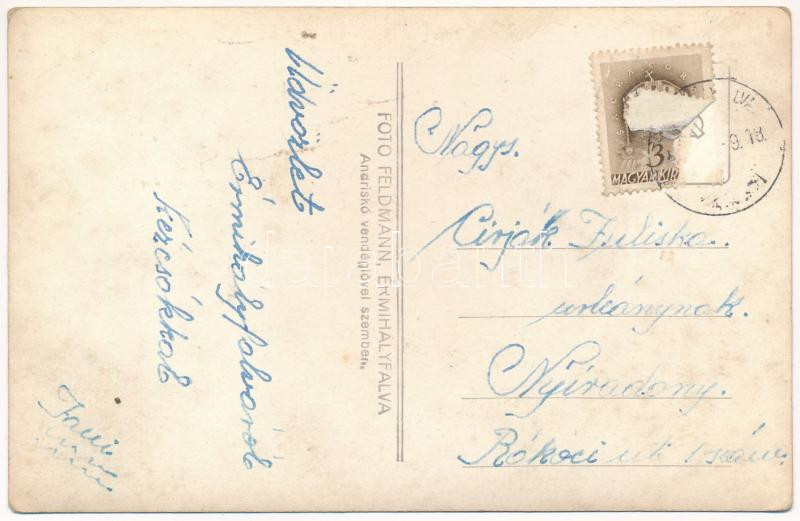 Üdvözlet
Érmihályfalváról
Kézcsókkal
FOTO FELDMANN, ÉRMIHÁLYFALVA
Andriskó vendéglővel szemben.
MAGYAR KIR
3
9. 13.
Nagys.
Cirják Juliska.
urleánynak.
Nyíradony.
Rákóci ut 1 szám.
darabanth